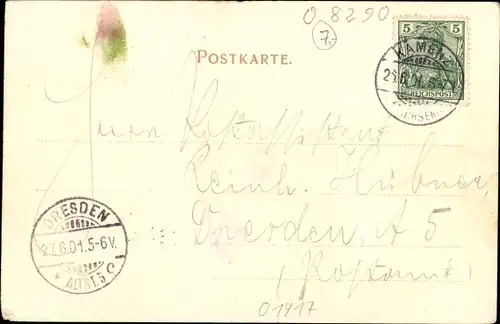 O 8290
7.
POSTKARTE.
5 5
REICHSPOST
KAMENZ
SACHSEN
Herrn Postassistent
Reinh. Hübner,
Dresden A 5
(Postamt)
DRESDEN
27.6.01.5-6V.
* ALTST.5 c
01917